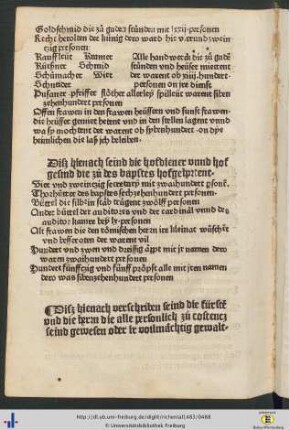 Goldschmid die zů gaden stůnden mit lxxij-personen
Recht herolten der künig dero ward hie v.ernnd zwein
tzig personen
Kauffleüt Kramer Alle handwerck die zů gadē
Kürßner Schmid stůnden vnd heüser mietent
Schůmacher Wirt der warent ob xiiij.hundert-
Schneider personen on jre dienst
Pusaner-pfeiffer flöther allerley spilleüt warent siben
zehenhundert personen
Offen frawen in den frawen heüssern vnd sunst frawen-
die heüsser gemiet hettent vnd in den stellen lagent vnnd
wa sy mochtent der warent ob sybenhundert-on dye
heimlichen die laß ich beleiben.
Disz hienach seind die hofdiener vnnd hof
gesind die zů des bapstes hof gehörent.
Vier vnd zweintzig secretary mit zwaihundert psonē.
Thorhütter des bapstes sechtzehenhundert personen-
Büttel die silbrin stäb trůgent zwölff personen
Ander büttel der auditores vnd der cardinäl vnnd de-
auditor camere bey lx-personen
Alt frawen die den römischen herrn ire kleinat wäschēt
vnd bessroten der warent vil
Hundert vnd zwen vnd dreissig äpt mit jr namen dero
waren zwaihundert personen
Hundert fünfftzig vnd fünff pröpst alle mit jren namen
dero was sibenzehenhundert personen
¶Disz hienach verschriben seind die fürstē
vnd die herrn die alle personlich zů costencz
seind gewesen oder ir volmächtig gewalt-
http://dl.ub.uni-freiburg.de/diglit/richental1483/0488
© Universitätsbibliothek Freiburg